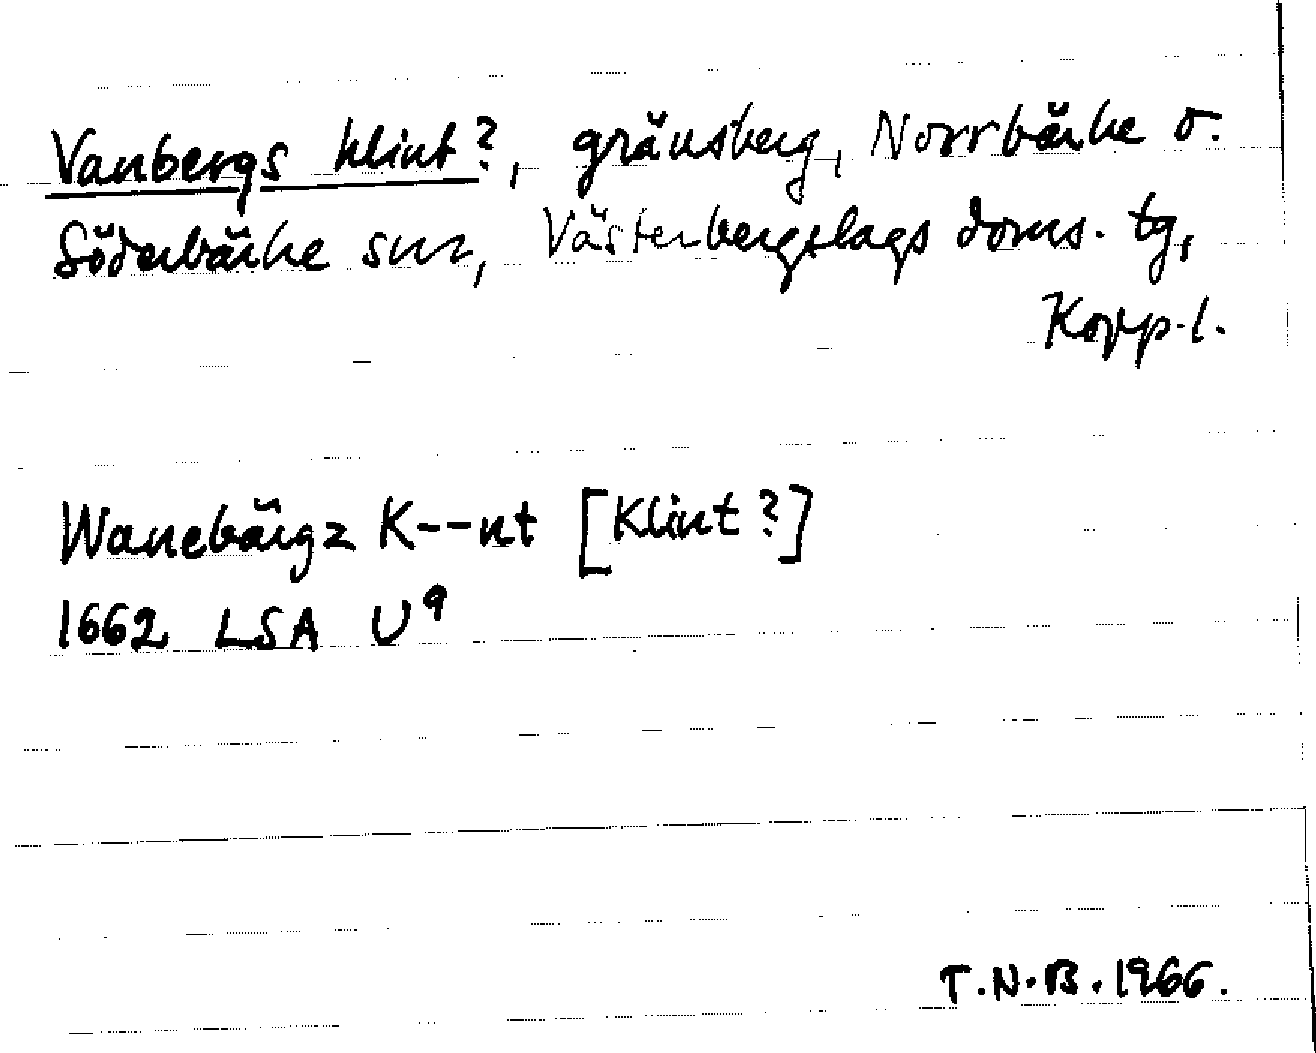 Vanbergs klint?, gränsberg, Norrbärke o.
Söderbärke snr, Västerbergslags doms. tg,
Kopp. l.
Wanebärgz K--nt [Klint?]
1662 LSA U9
T.N.B. 1966.